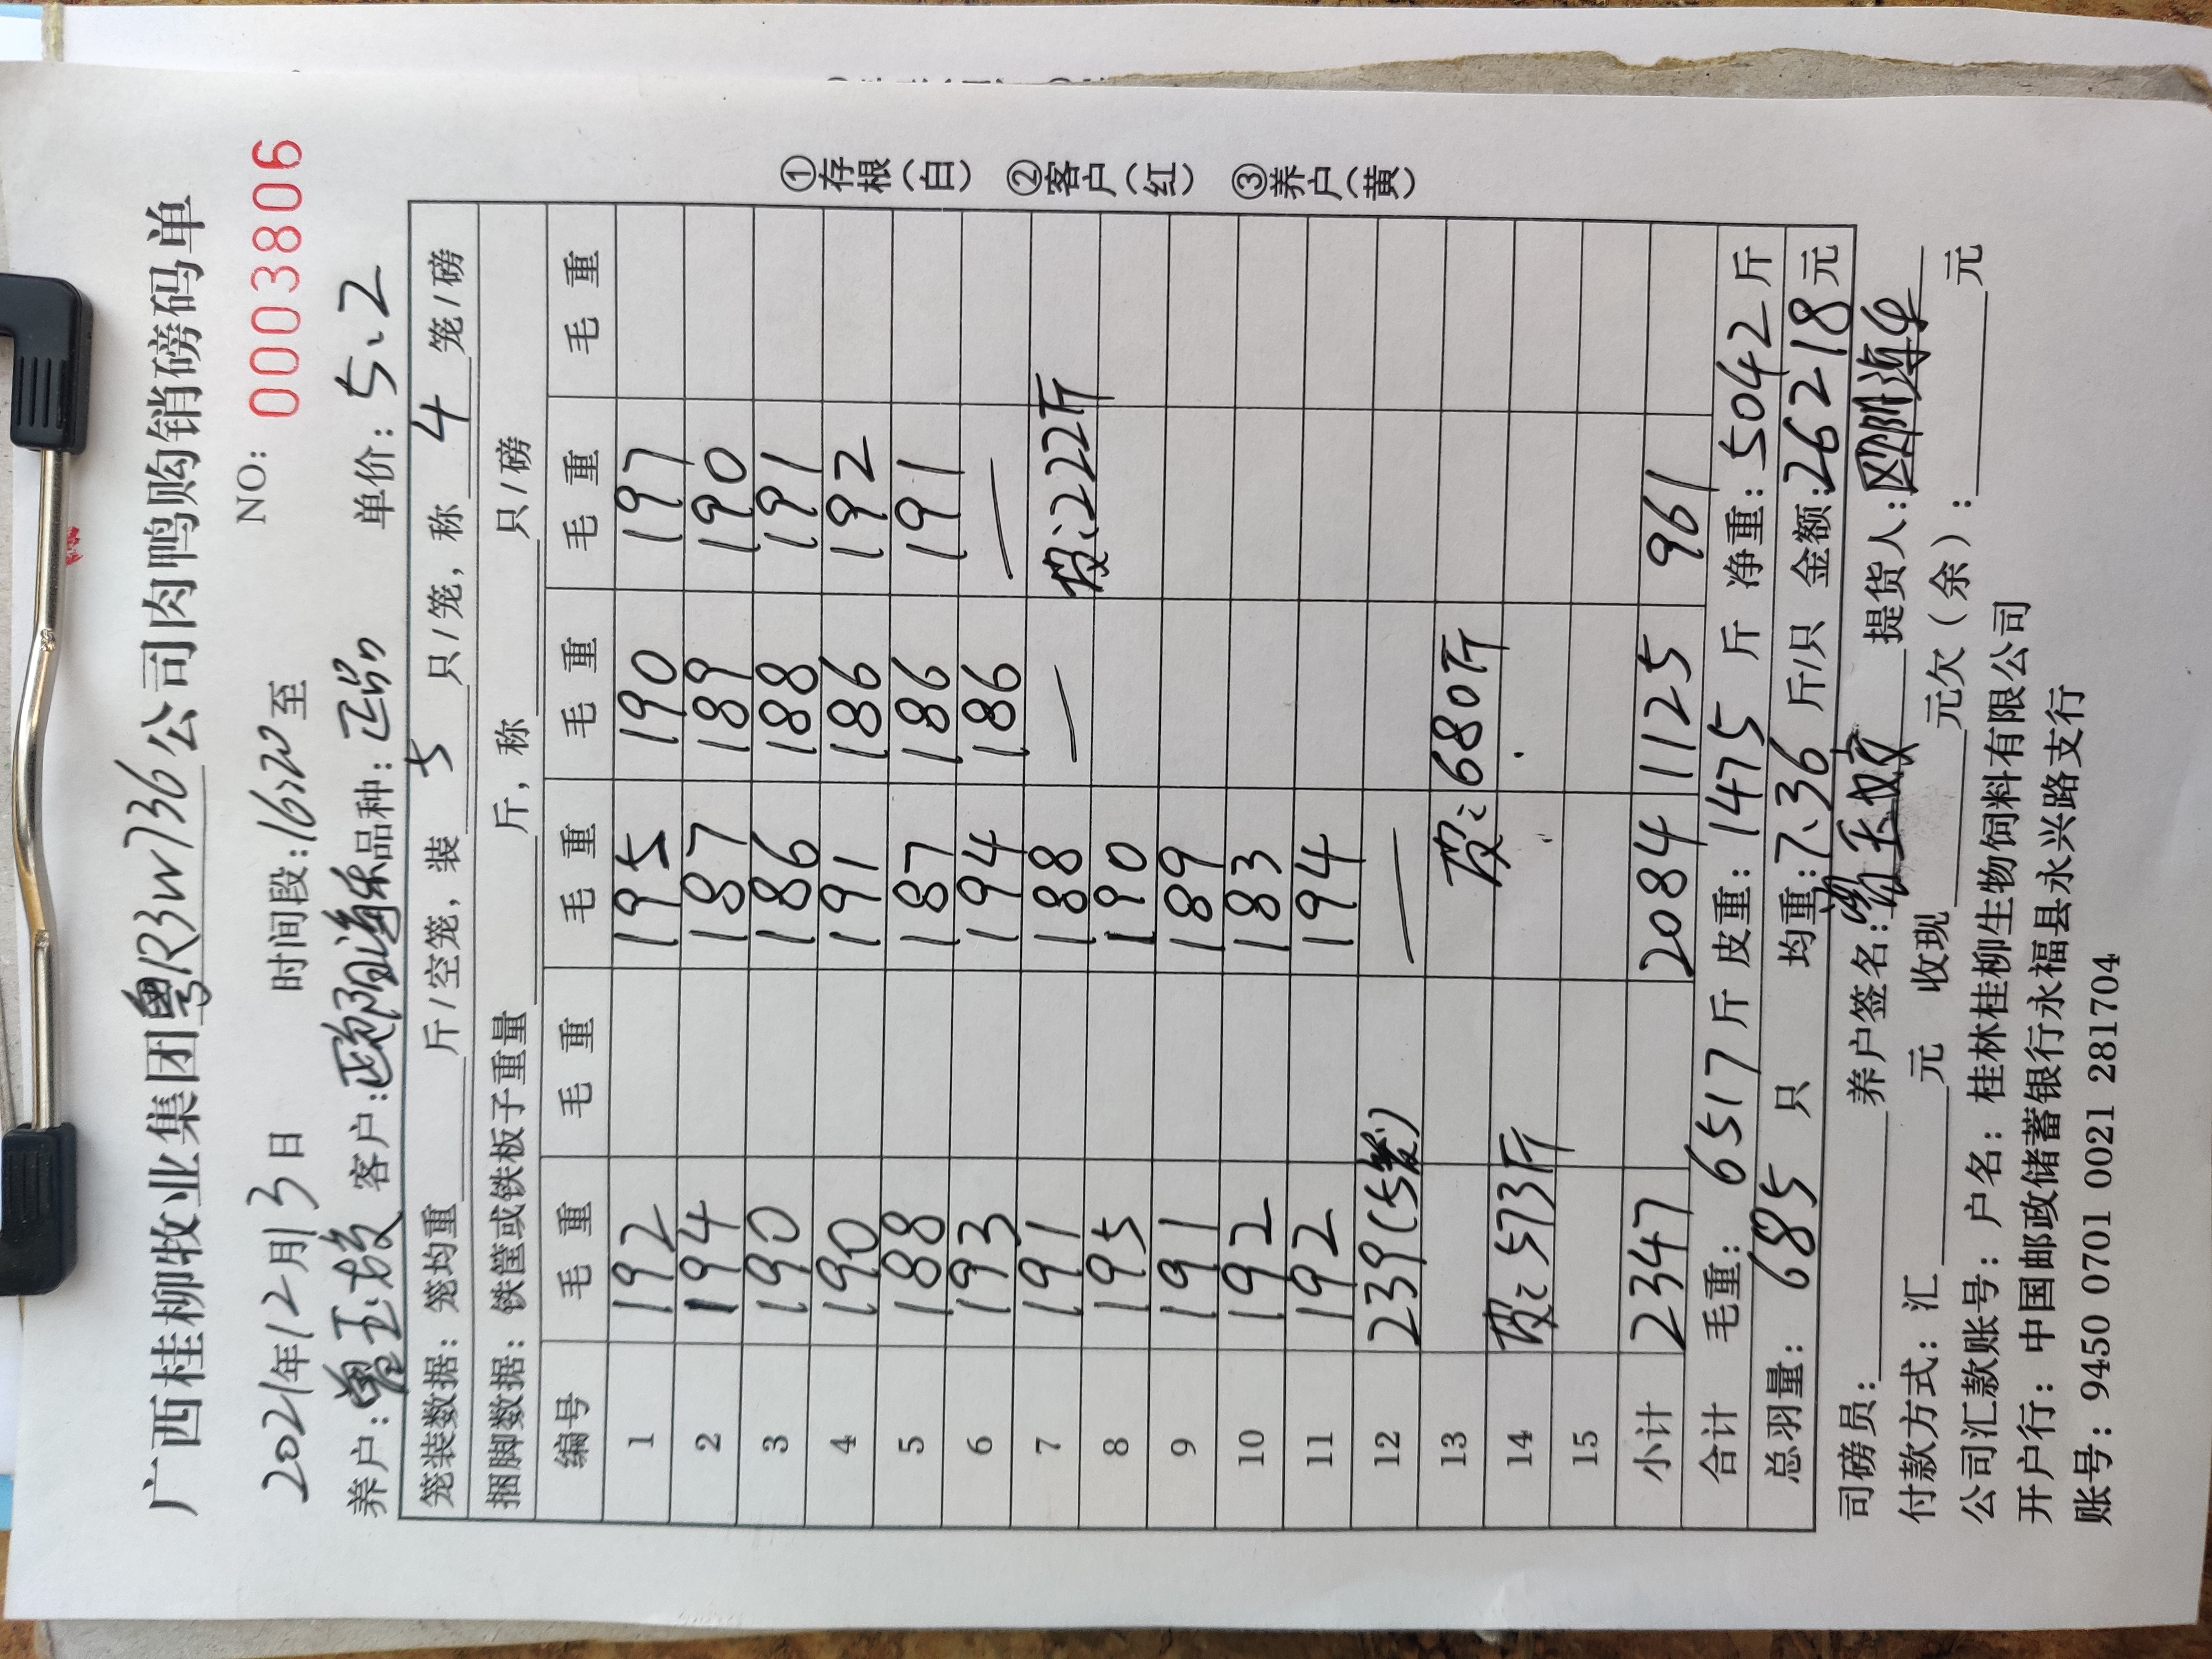 广西桂柳牧业集团粤R3W736公司肉鸭购销磅码单
NO: 0003806
2021年12月3日 时间段:16:20至
养户: 客户:欧阳海乐 品种:正品 单价:5.2
笼装数据:笼均重 斤/空笼,装 5 只/笼,称 4 笼/磅
捆脚数据:铁筐或铁板子重量 斤,称 只/磅
编号 毛重 毛重 毛重 毛重 毛重 毛重
1 192 195 190 197
2 194 187 189 190
3 190 186 188 191
4 190 191 186 192
5 188 187 186 191
6 193 194 186 —
7 191 188 — 皮:222斤
8 195 190
9 191 189
10 192 183
11 192 194
12 239(5笼) —
13 皮:680斤
14 皮:573斤
15
小计 2347 2084 1125 961
合计 毛重:6517斤 皮重:1475斤 净重:5042斤
总羽量:685 只 均重:7.36 斤/只 金额:26218元
司磅员: 养户签名: 提货人:
付款方式:汇 元 收现 元欠(余): 元
公司汇款账号:户名:桂林桂柳生物饲料有限公司
开户行:中国邮政储蓄银行永福县永兴路支行
账号:9450 0701 0021 281704
①存根(白) ②客户(红) ③养户(黄)